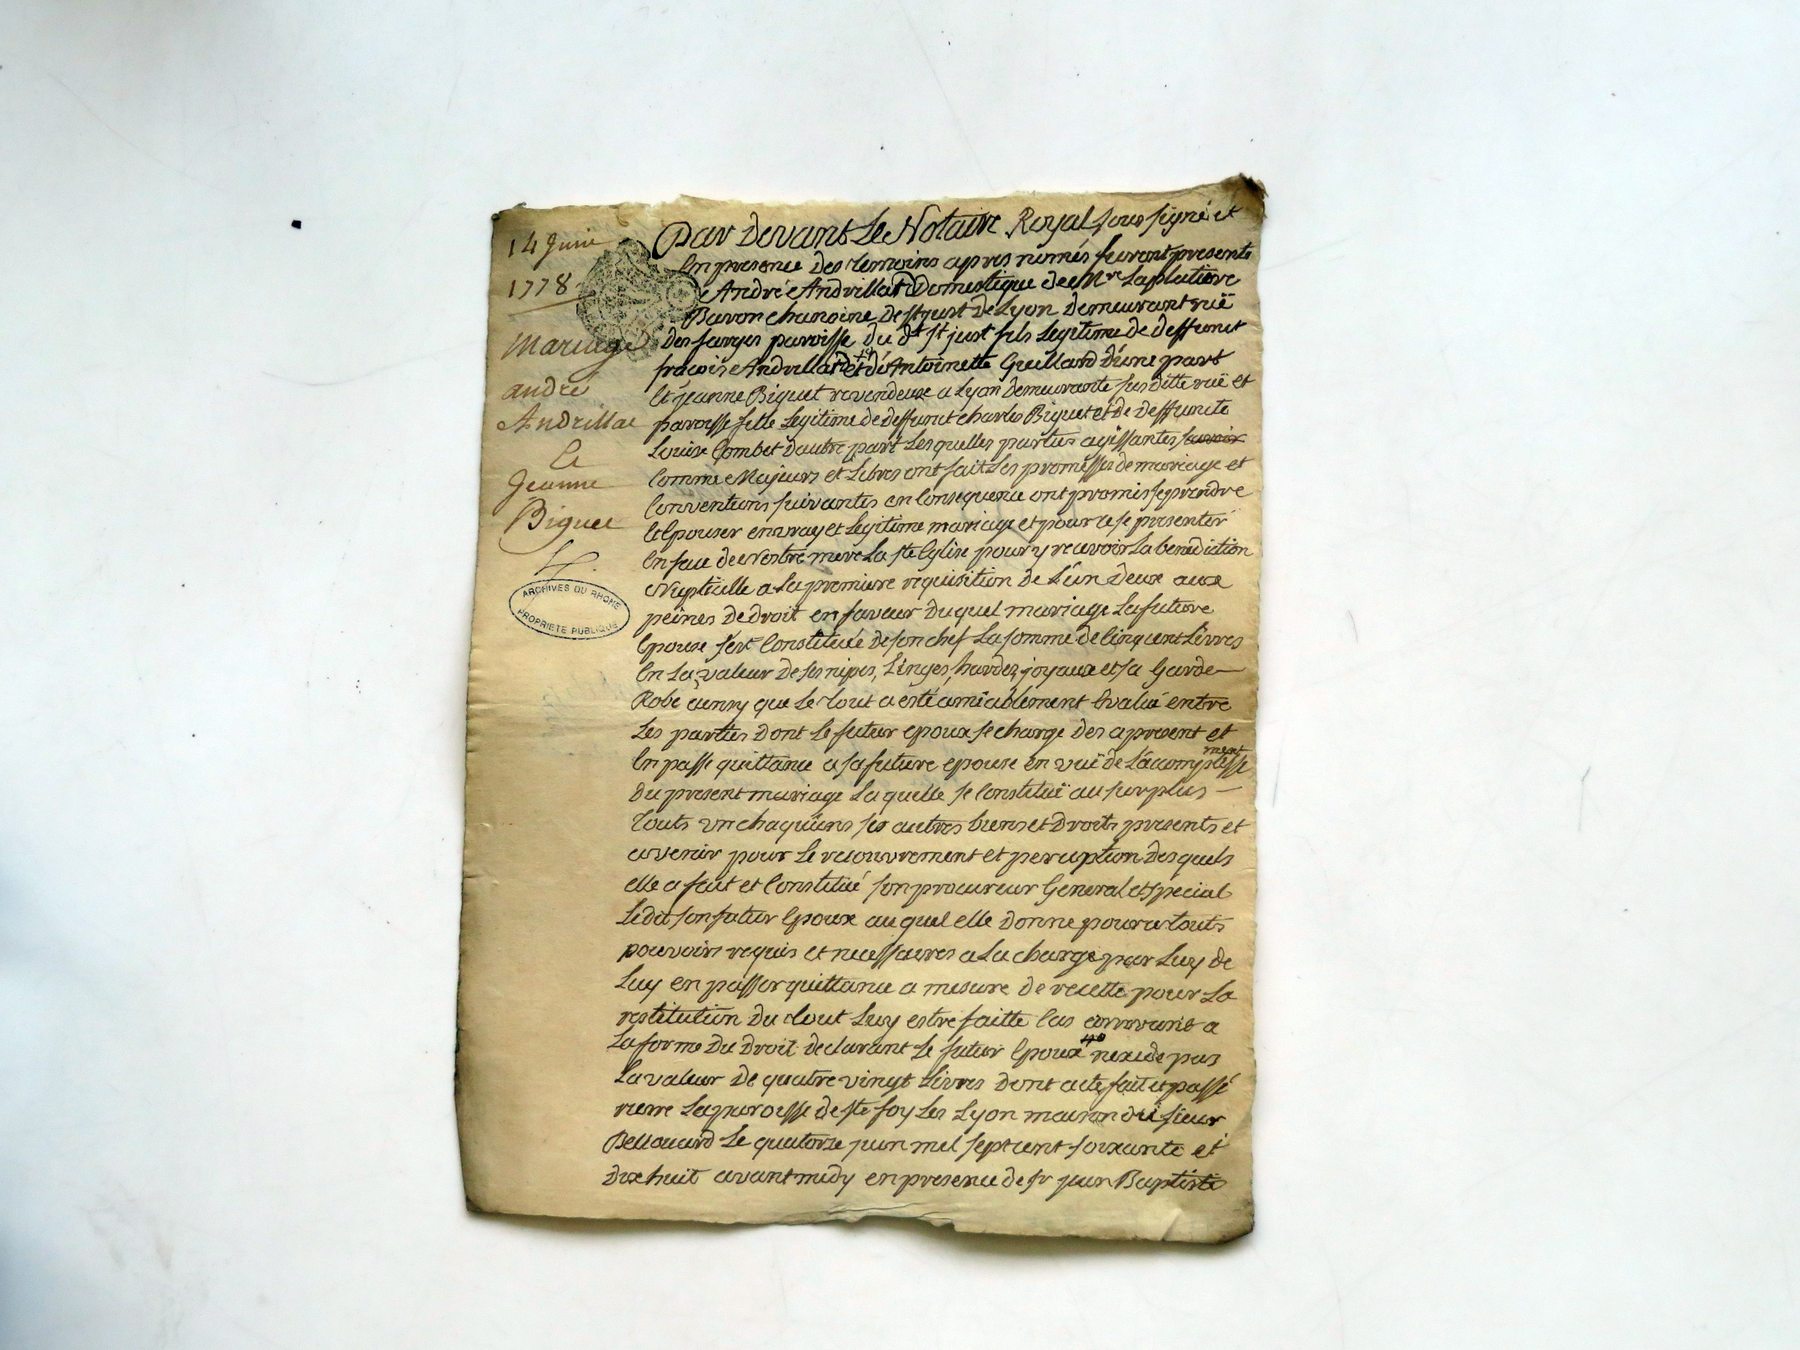 14 Juin
1778
Mariage
andré
Andrillat
et
Jeanne
Biguet
ARCHIVES DU RHONE
PROPRIETE PUBLIQUE
Par Devant Le Notaire Royal sous signé et
En presence des temoins apres només furent presents
André Andrillat Domestique de Mr Laplatiere
Baron chanoine de st just de Lyon demeurant ruë
des farges paroisse du dt st just fils Legitime de deffunt
françois Andrillat et d'Antoinette Guillard d'une part
Et jeanne Biguet revendeuse a Lyon demeurante susditte ruë et
paroisse fille Legitime de deffunt charles Biguet et de deffunte
Louise Combet d'autre part Lesquelles parties agissantes
Comme Majeurs et Libres ont fait Les promesses de mariage et
Conventions suivantes en Consequence ont promis se prendre
Et Epouser en vray et Legitime mariage et pour ce se presenter
En face de Nostre mere La ste Eglise pour y recevoir La benediction
Nuptialle a La premiere requisition de L'un deux aux
peines de droit en faveur du quel mariage La future
Epouse s'est Constituée de son chef La somme de Cinq cent Livres
En La valeur de ses nipes, Linges, hardes, joyaux et sa Garde
Robe ainsy que Le tout a esté amiablement Evalué entre
Les parties dont Le futur epoux se charge des a present et
En passe quittance a sa future epouse en vuë de L'accomplisse
ment
du present mariage La quelle se Constituë au surplus
touts un chaqu'uns ses autres biens et droits presents et
avenir pour Le recouvrement et perception des quels
elle a fait et Constitué son procureur General et special
Le dit son futur Epoux au quel elle donne pour ce touts
pouvoirs requis et necessaires a La charge par Luy de
Luy en passer quittance a mesure de recette pour La
restitution du tout Luy estre faitte Cas arrivant a
La forme du droit declarant Le futur Epoux n'excede pas
La valeur de quatre vingt Livres dont acte fait et passé
rierre La paroisse de ste foy Les Lyon maison du sieur
Bellouard Le quatorze juin mil sept cent soixante et
dix huit avant midy en presence de sr jean Baptiste